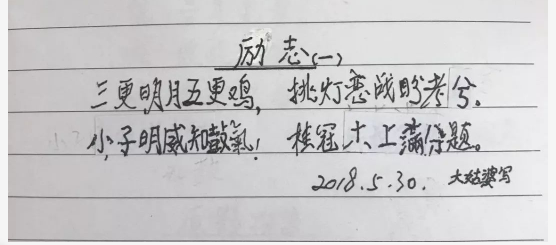 励志(一)
三更明月五更鸡, 挑灯恋战盼考分。
小子明感知鼓氣! 桂冠六上满保题。
2018.5.30. 大姑婆写